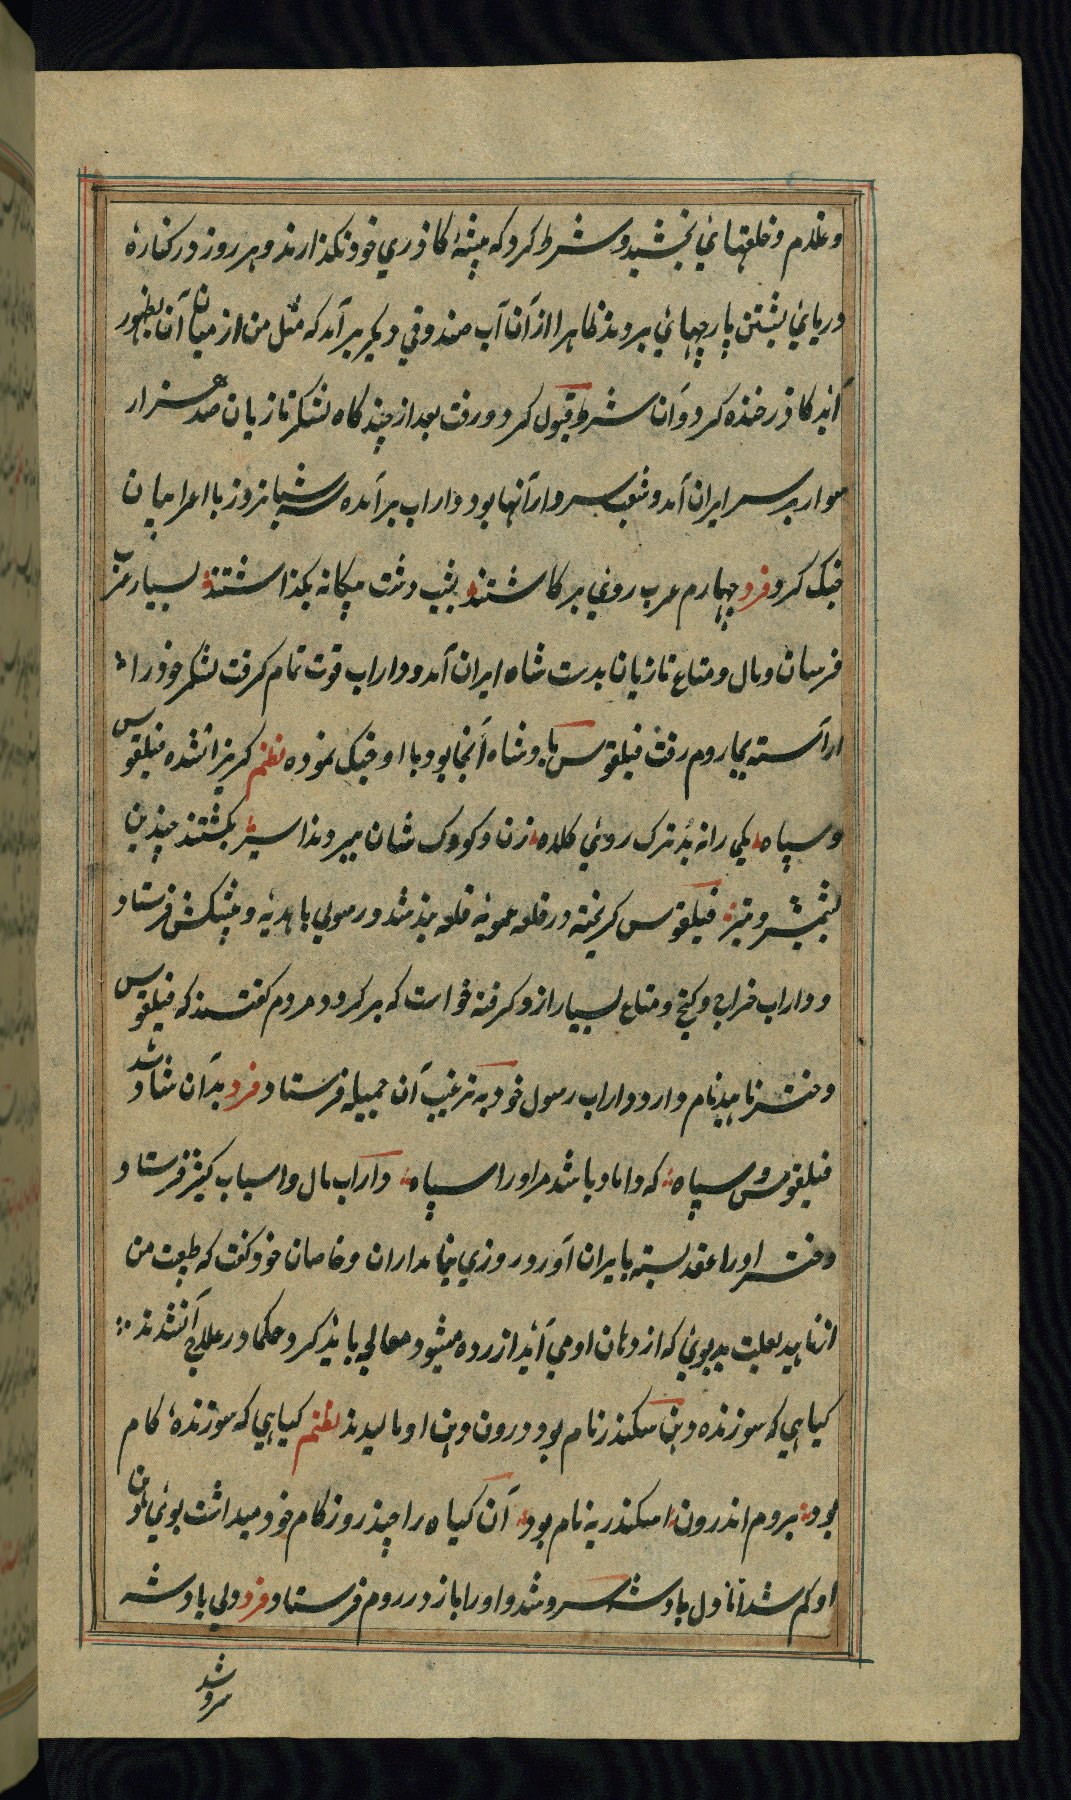 وغلام وخلعتهائي بخشيد وشرط كرد كه پيشهٔ كاذري خود نكذارند وهر روز در كنارهٔ
دريائي بشتن پارچهائي بروند ظاهرا از آن آب صندوقي ديكر برآيد كه مثل من از ميان آن بظهور
آيد كاذر خنده كرد وآن شرط قبول كرد ورفت بعد از چند كاه لشكر تازيان صد هزار
سوار بر سر ايران آمد وشعيب سردار آنها بود داراب برآمده سه شبانروز با اعرابيان
جنك كرد فرد چهارم عرب روي بركاشتند بشب دشت پيكانه بكذاشتند بسيار عرب
فرسان ومال ومتاع تازيان بدست شاه ايران آمد وداراب قوت تمام كرفت لشكر خود را
آراسته بجا روم رفت فيلقوس پادشاه آنجا بود با او جنك نموده نظم كريزان شده فيلقوس
وسپاه يكي را نه بد ترك روي كلاه زن وكودك شان ببردند اسير بكشتند چندين
بشمشير وتير فيلقوس كريخته در قلعه عموريه قلعه بند شد ورسولي با هديه وپيشكش فرستاد
وداراب خراج وكنج ومتاع بسيار از و كرفته خواست كه بركردد مردم كفتند كه فيلقوس
دختر ناهيد نام دارد داراب رسول خود به ترغيب آن جميله فرستاد فرد بدآن شاد شد
فيلقوس وسپاه كه داماد باشد مر او را سپاه داراب مال واسباب كثير فرستاد
دختر او را عقد بسته بايران آورد روزي بنامداران وخاصان خود كفت كه طبيعت من
از ناهيد بعلت بد بوئي كه از دهان او مي آيد آزرده ميشود معالجه بايد كرد حكما در علاج آن شدند
كياهي كه سوزنده دهن سكندر نام بود درون دهن او ماليدند نظم كياهي كه سوزندهٔ كام
بود بروم اندرون اسكندريه نام بود آن كياه را چند روز كام خود ميداشت بوئي دهان
او كم شد اما دل پادشه سرد شد واورا باز در روم فرستاد فرد دلي پادشه
سرد شد